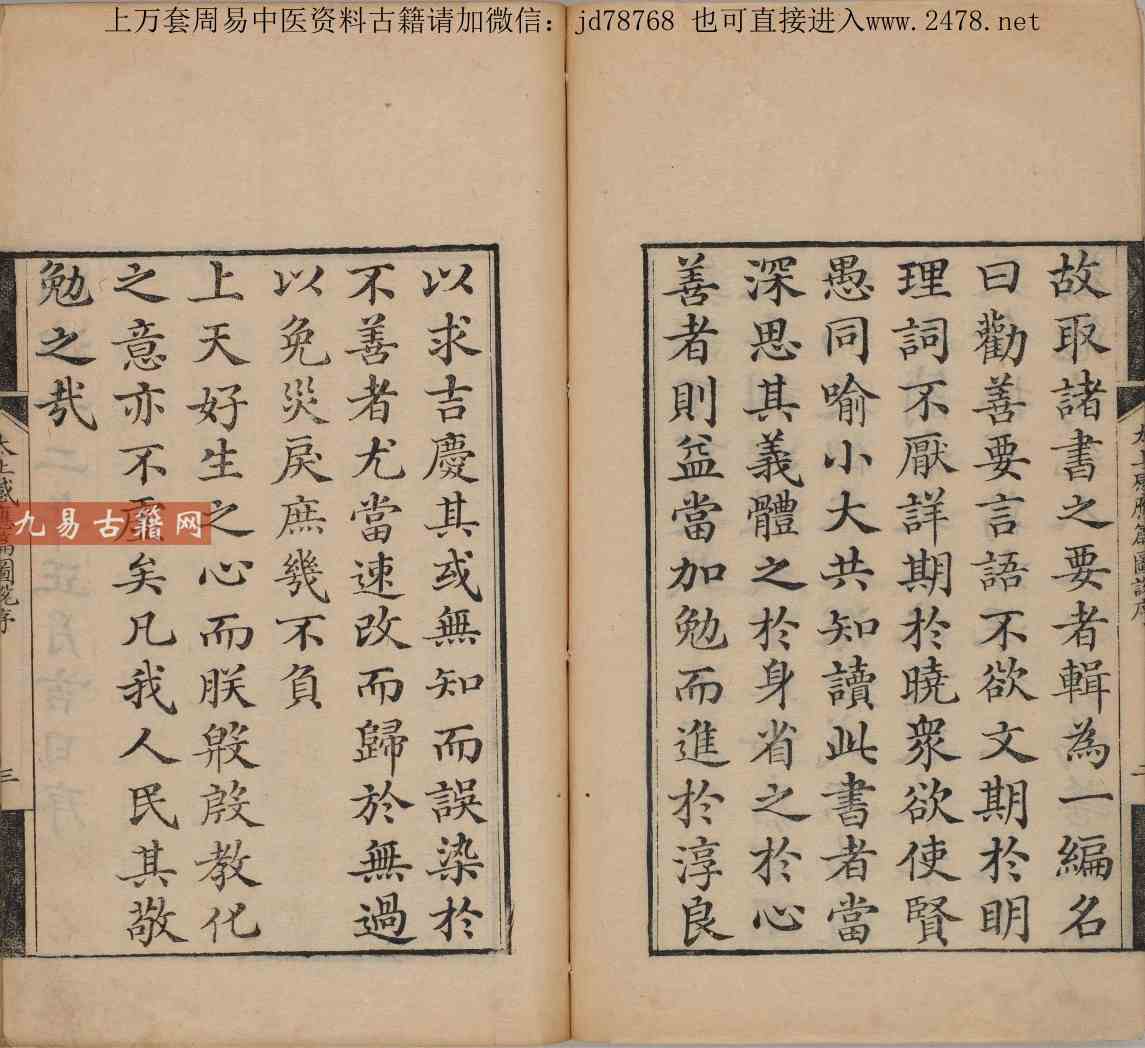 上万套周易中医资料古籍请加微信：jd78768 也可直接进入www.2478.net
故取諸書之要者輯為一編名
曰勸善要言語不欲文期於明
理詞不厭詳期於曉衆欲使賢
愚同喻小大共知讀此書者當
深思其義體之於身省之於心
善者則益當加勉而進於淳良
以求吉慶其或無知而誤染於
不善者尤當速改而歸於無過
以免災戾庶幾不負
上天好生之心而朕殷殷教化
之意亦不虛矣凡我人民其敬
勉之哉
太上感應篇圖說序
三
九易古籍网